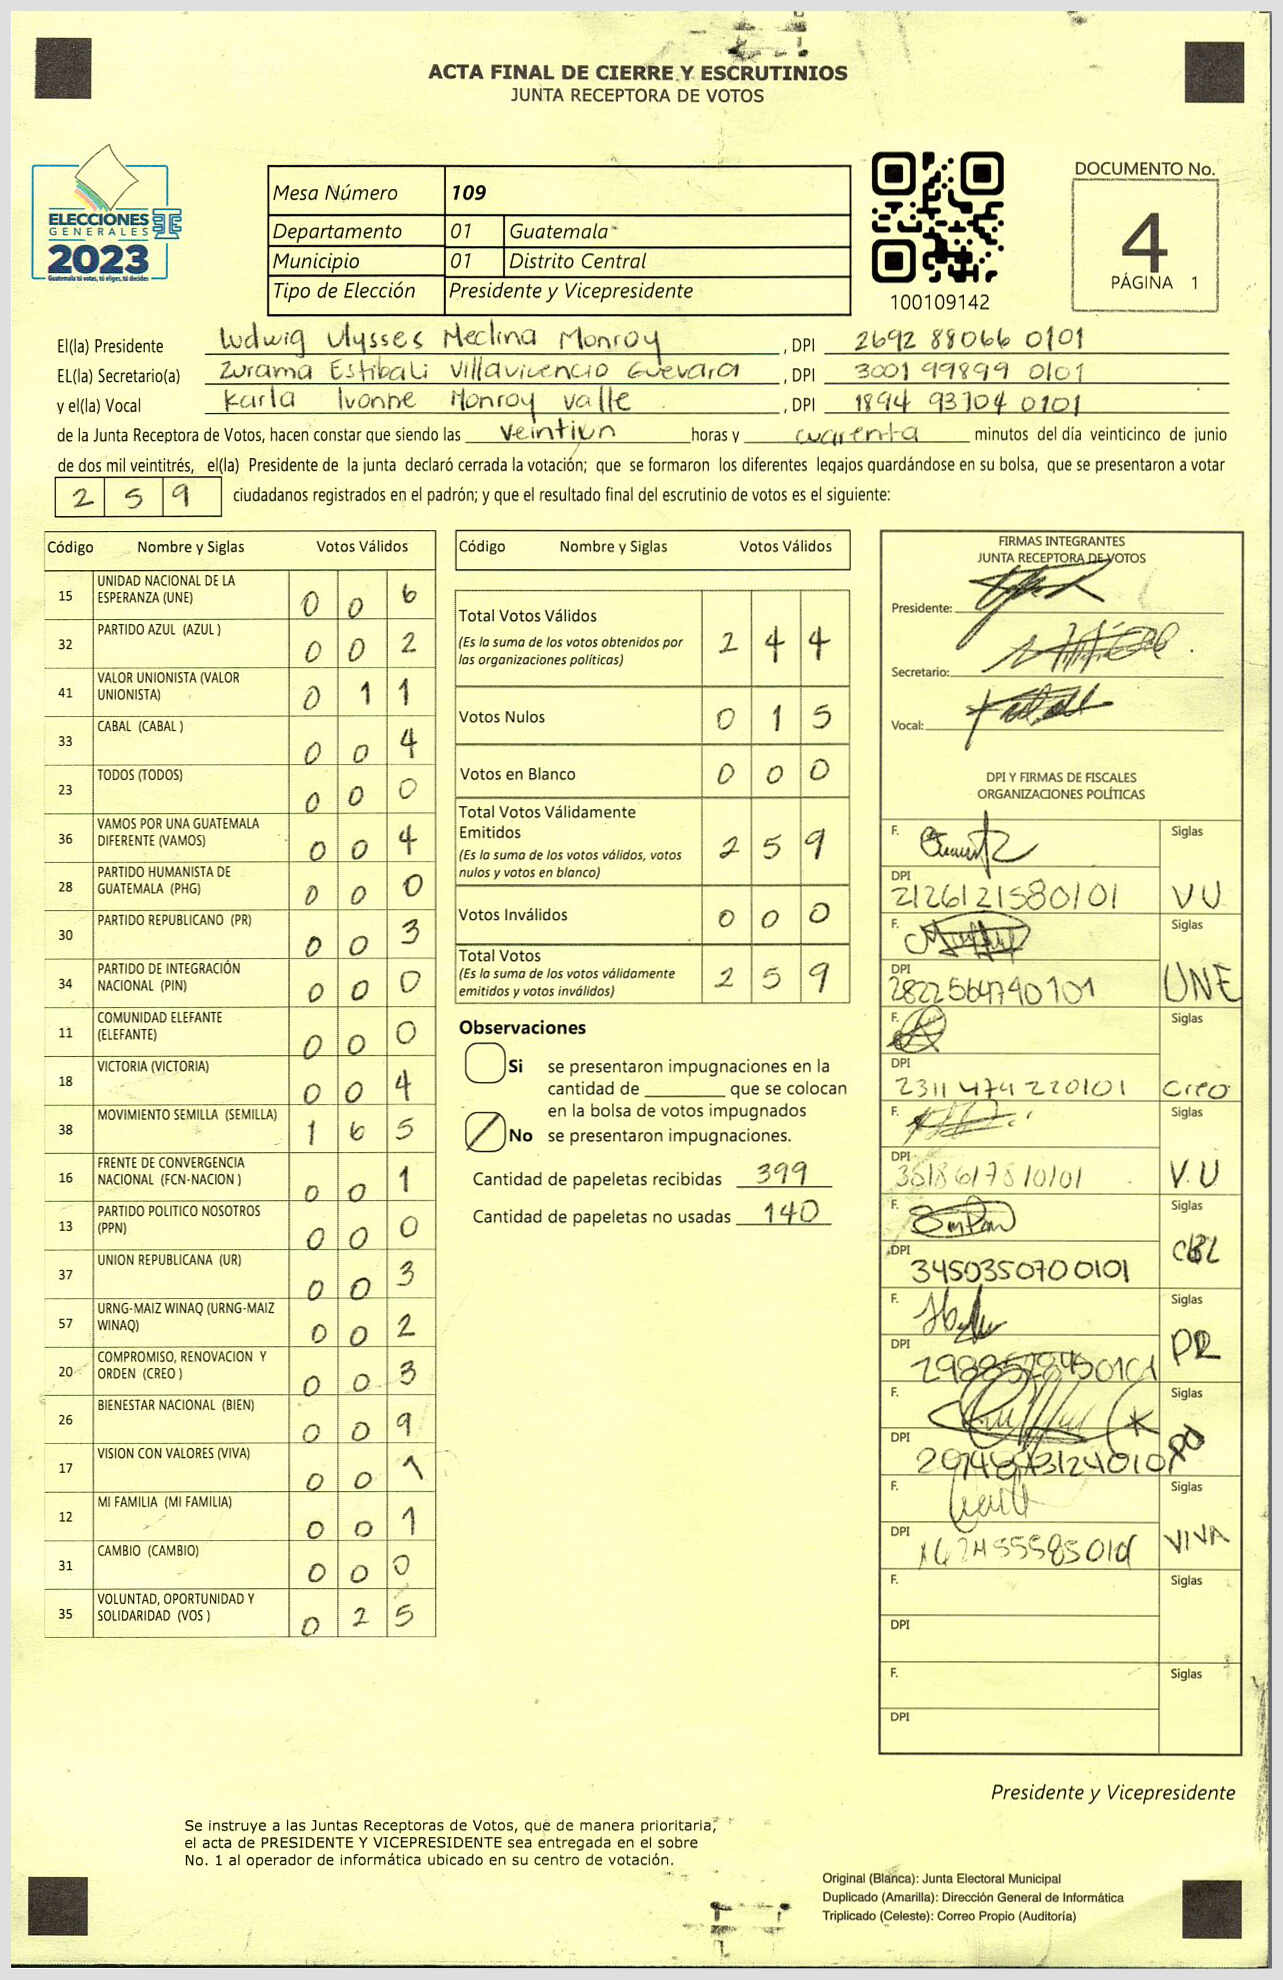 ACTA FINAL DE CIERRE Y ESCRUTINIOS
JUNTA RECEPTORA DE VOTOS
ELECCIONES
GENERALES
2023
Guatemala tú votas, tú eliges, tú decides
Mesa Número 109
Departamento 01 Guatemala
Municipio 01 Distrito Central
Tipo de Elección Presidente y Vicepresidente
100109142
DOCUMENTO No.
4
PÁGINA 1
El(la) Presidente Ludwig Ulysses Medina Monroy, DPI 2692 88066 0101
EL(la) Secretario(a) Zurama Estibali Villavicencio Guevara, DPI 3001 99899 0101
y el(la) Vocal Karla Ivonne Monroy Valle, DPI 1894 93704 0101
de la Junta Receptora de Votos, hacen constar que siendo las veintiun horas y cuarenta minutos del día veinticinco de junio
de dos mil veintitrés, el(la) Presidente de la junta declaró cerrada la votación; que se formaron los diferentes legajos guardándose en su bolsa, que se presentaron a votar
259 ciudadanos registrados en el padrón; y que el resultado final del escrutinio de votos es el siguiente:
Código Nombre y Siglas Votos Válidos
15 UNIDAD NACIONAL DE LA ESPERANZA (UNE) 0 0 6
32 PARTIDO AZUL (AZUL ) 0 0 2
41 VALOR UNIONISTA (VALOR UNIONISTA) 0 1 1
33 CABAL (CABAL ) 0 0 4
23 TODOS (TODOS) 0 0 0
36 VAMOS POR UNA GUATEMALA DIFERENTE (VAMOS) 0 0 4
28 PARTIDO HUMANISTA DE GUATEMALA (PHG) 0 0 0
30 PARTIDO REPUBLICANO (PR) 0 0 3
34 PARTIDO DE INTEGRACIÓN NACIONAL (PIN) 0 0 0
11 COMUNIDAD ELEFANTE (ELEFANTE) 0 0 0
18 VICTORIA (VICTORIA) 0 0 4
38 MOVIMIENTO SEMILLA (SEMILLA) 1 6 5
16 FRENTE DE CONVERGENCIA NACIONAL (FCN-NACION ) 0 0 1
13 PARTIDO POLITICO NOSOTROS (PPN) 0 0 0
37 UNION REPUBLICANA (UR) 0 0 3
57 URNG-MAIZ WINAQ (URNG-MAIZ WINAQ) 0 0 2
20 COMPROMISO, RENOVACION Y ORDEN (CREO ) 0 0 3
26 BIENESTAR NACIONAL (BIEN) 0 0 9
17 VISION CON VALORES (VIVA) 0 0 1
12 MI FAMILIA (MI FAMILIA) 0 0 1
31 CAMBIO (CAMBIO) 0 0 0
35 VOLUNTAD, OPORTUNIDAD Y SOLIDARIDAD (VOS ) 0 2 5
Código Nombre y Siglas Votos Válidos
Total Votos Válidos 2 4 4
(Es la suma de los votos obtenidos por
las organizaciones políticas)
Votos Nulos 0 1 5
Votos en Blanco 0 0 0
Total Votos Válidamente
Emitidos 2 5 9
(Es la suma de los votos válidos, votos
nulos y votos en blanco)
Votos Inválidos 0 0 0
Total Votos 2 5 9
(Es la suma de los votos válidamente
emitidos y votos inválidos)
Observaciones
Si se presentaron impugnaciones en la
cantidad de ________ que se colocan
en la bolsa de votos impugnados
No se presentaron impugnaciones.
Cantidad de papeletas recibidas 399
Cantidad de papeletas no usadas 140
FIRMAS INTEGRANTES
JUNTA RECEPTORA DE VOTOS
Presidente:
Secretario:
Vocal:
DPI Y FIRMAS DE FISCALES
ORGANIZACIONES POLÍTICAS
F. Siglas
DPI 2126121580101 VU
F. Siglas
DPI 2822564740101 UNE
F. Siglas
DPI 2311 474 220101 Creo
F. Siglas
DPI 3518617810101 V.U
F. Siglas
DPI 3450350700101 CBL
F. Siglas
DPI PR
F. Siglas
DPI
F. Siglas
DPI VIVA
F. Siglas
DPI
F. Siglas
DPI
Presidente y Vicepresidente
Se instruye a las Juntas Receptoras de Votos, que de manera prioritaria,
el acta de PRESIDENTE Y VICEPRESIDENTE sea entregada en el sobre
No. 1 al operador de informática ubicado en su centro de votación.
Original (Blanca): Junta Electoral Municipal
Duplicado (Amarilla): Dirección General de Informática
Triplicado (Celeste): Correo Propio (Auditoría)